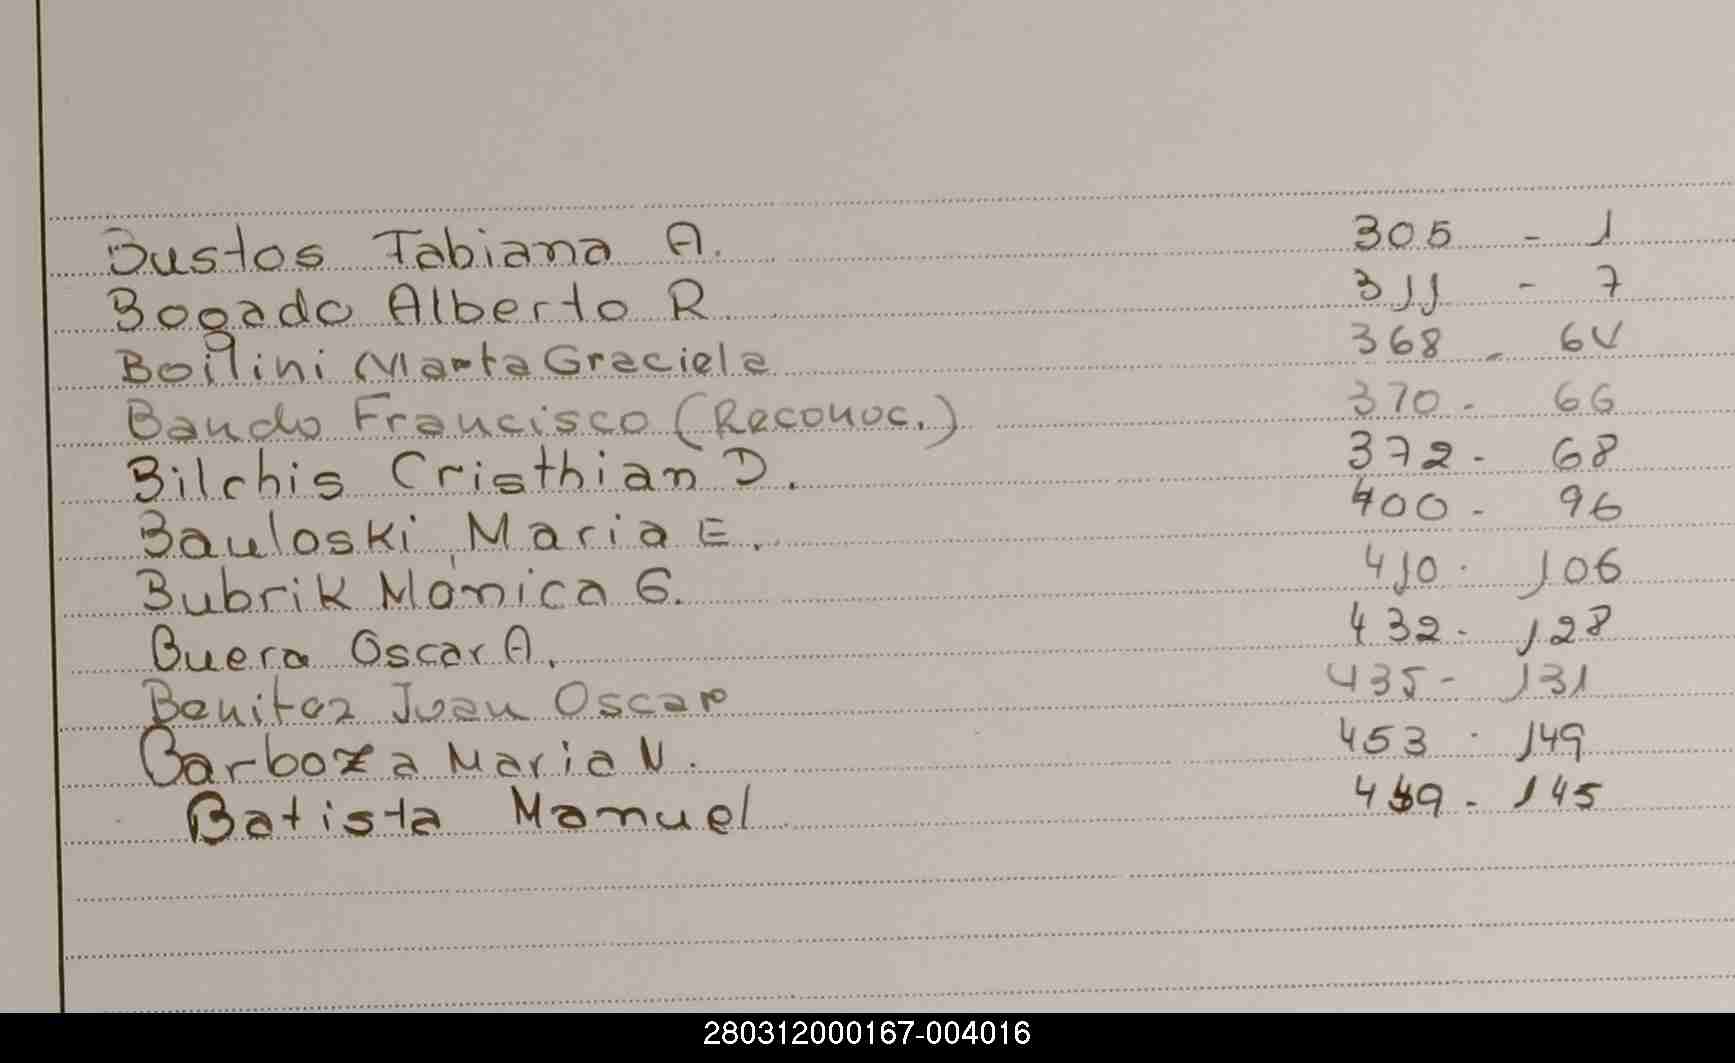 Bustos Fabiana A. 305 - 1
Bogado Alberto R 311 - 7
Boilini Marta Graciela 368 - 64
Bando Francisco (Reconoc.) 370 - 66
Bilchis Cristhian D. 372 - 68
Bauloski Maria E. 400 - 96
Bubrik Mónica G. 410 - 106
Buera Oscar A. 432 - 128
Benitez Juan Oscar 435 - 131
Barboza Maria N. 453 - 149
Batista Manuel 449 - 145
280312000167-004016